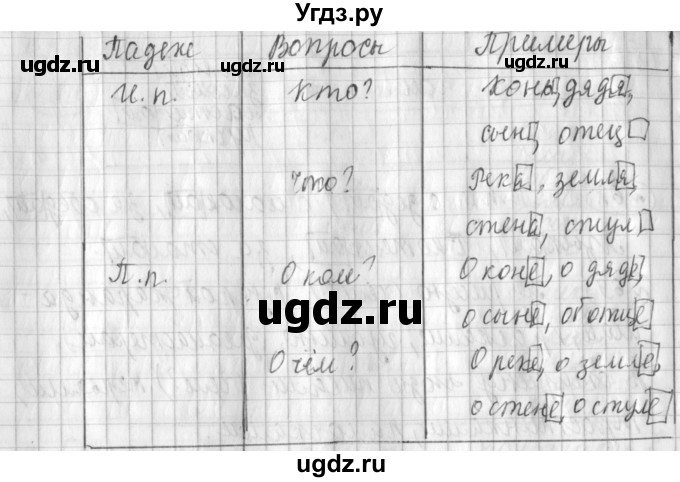 Угдз.ру
Падеж Вопросы Примеры
ugdz.ru ugdz.ru ugdz.ru
И.п. Кто? Конь, дядя,
сын, отец
Что? Река, земля,
стена, стул
П.п. О ком? О коне, о дяде,
ugdz.ru
о сыне, об отце
О чём? О реке, о земле,
о стене, о стуле
ugdz.ru ugdz.ru
ugdz.ru